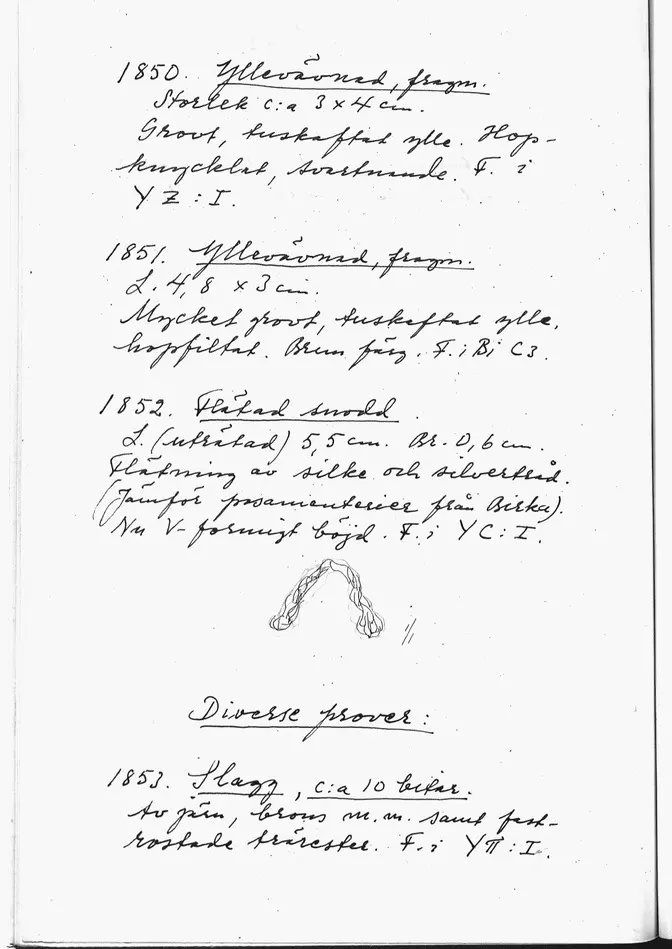 1850. Yllevävnad, fragm.
Storlek c:a 3 x 4 cm.
Grovt, tuskaftat ylle. Hop-
knycklat, svartnande. F. i
YZ : I.
1851. Yllevävnad, fragm.
L. 4,8 x 3 cm.
Mycket grovt, tuskaftat ylle,
hopfiltat. Brun färg. F. i Bi C3.
1852. Flätad snodd
L. (uträtad) 5,5 cm. Br. 0,6 cm.
Flätning av silke och silvertråd.
(Jämför posamenterier från Birka).
Nu V-formigt böjd. F. i YC : I.
1/1
Diverse prover:
1853. Slagg, c:a 10 bitar.
Av järn, brons m.m. samt fast-
rostade trärester. F. i YΠ : I.